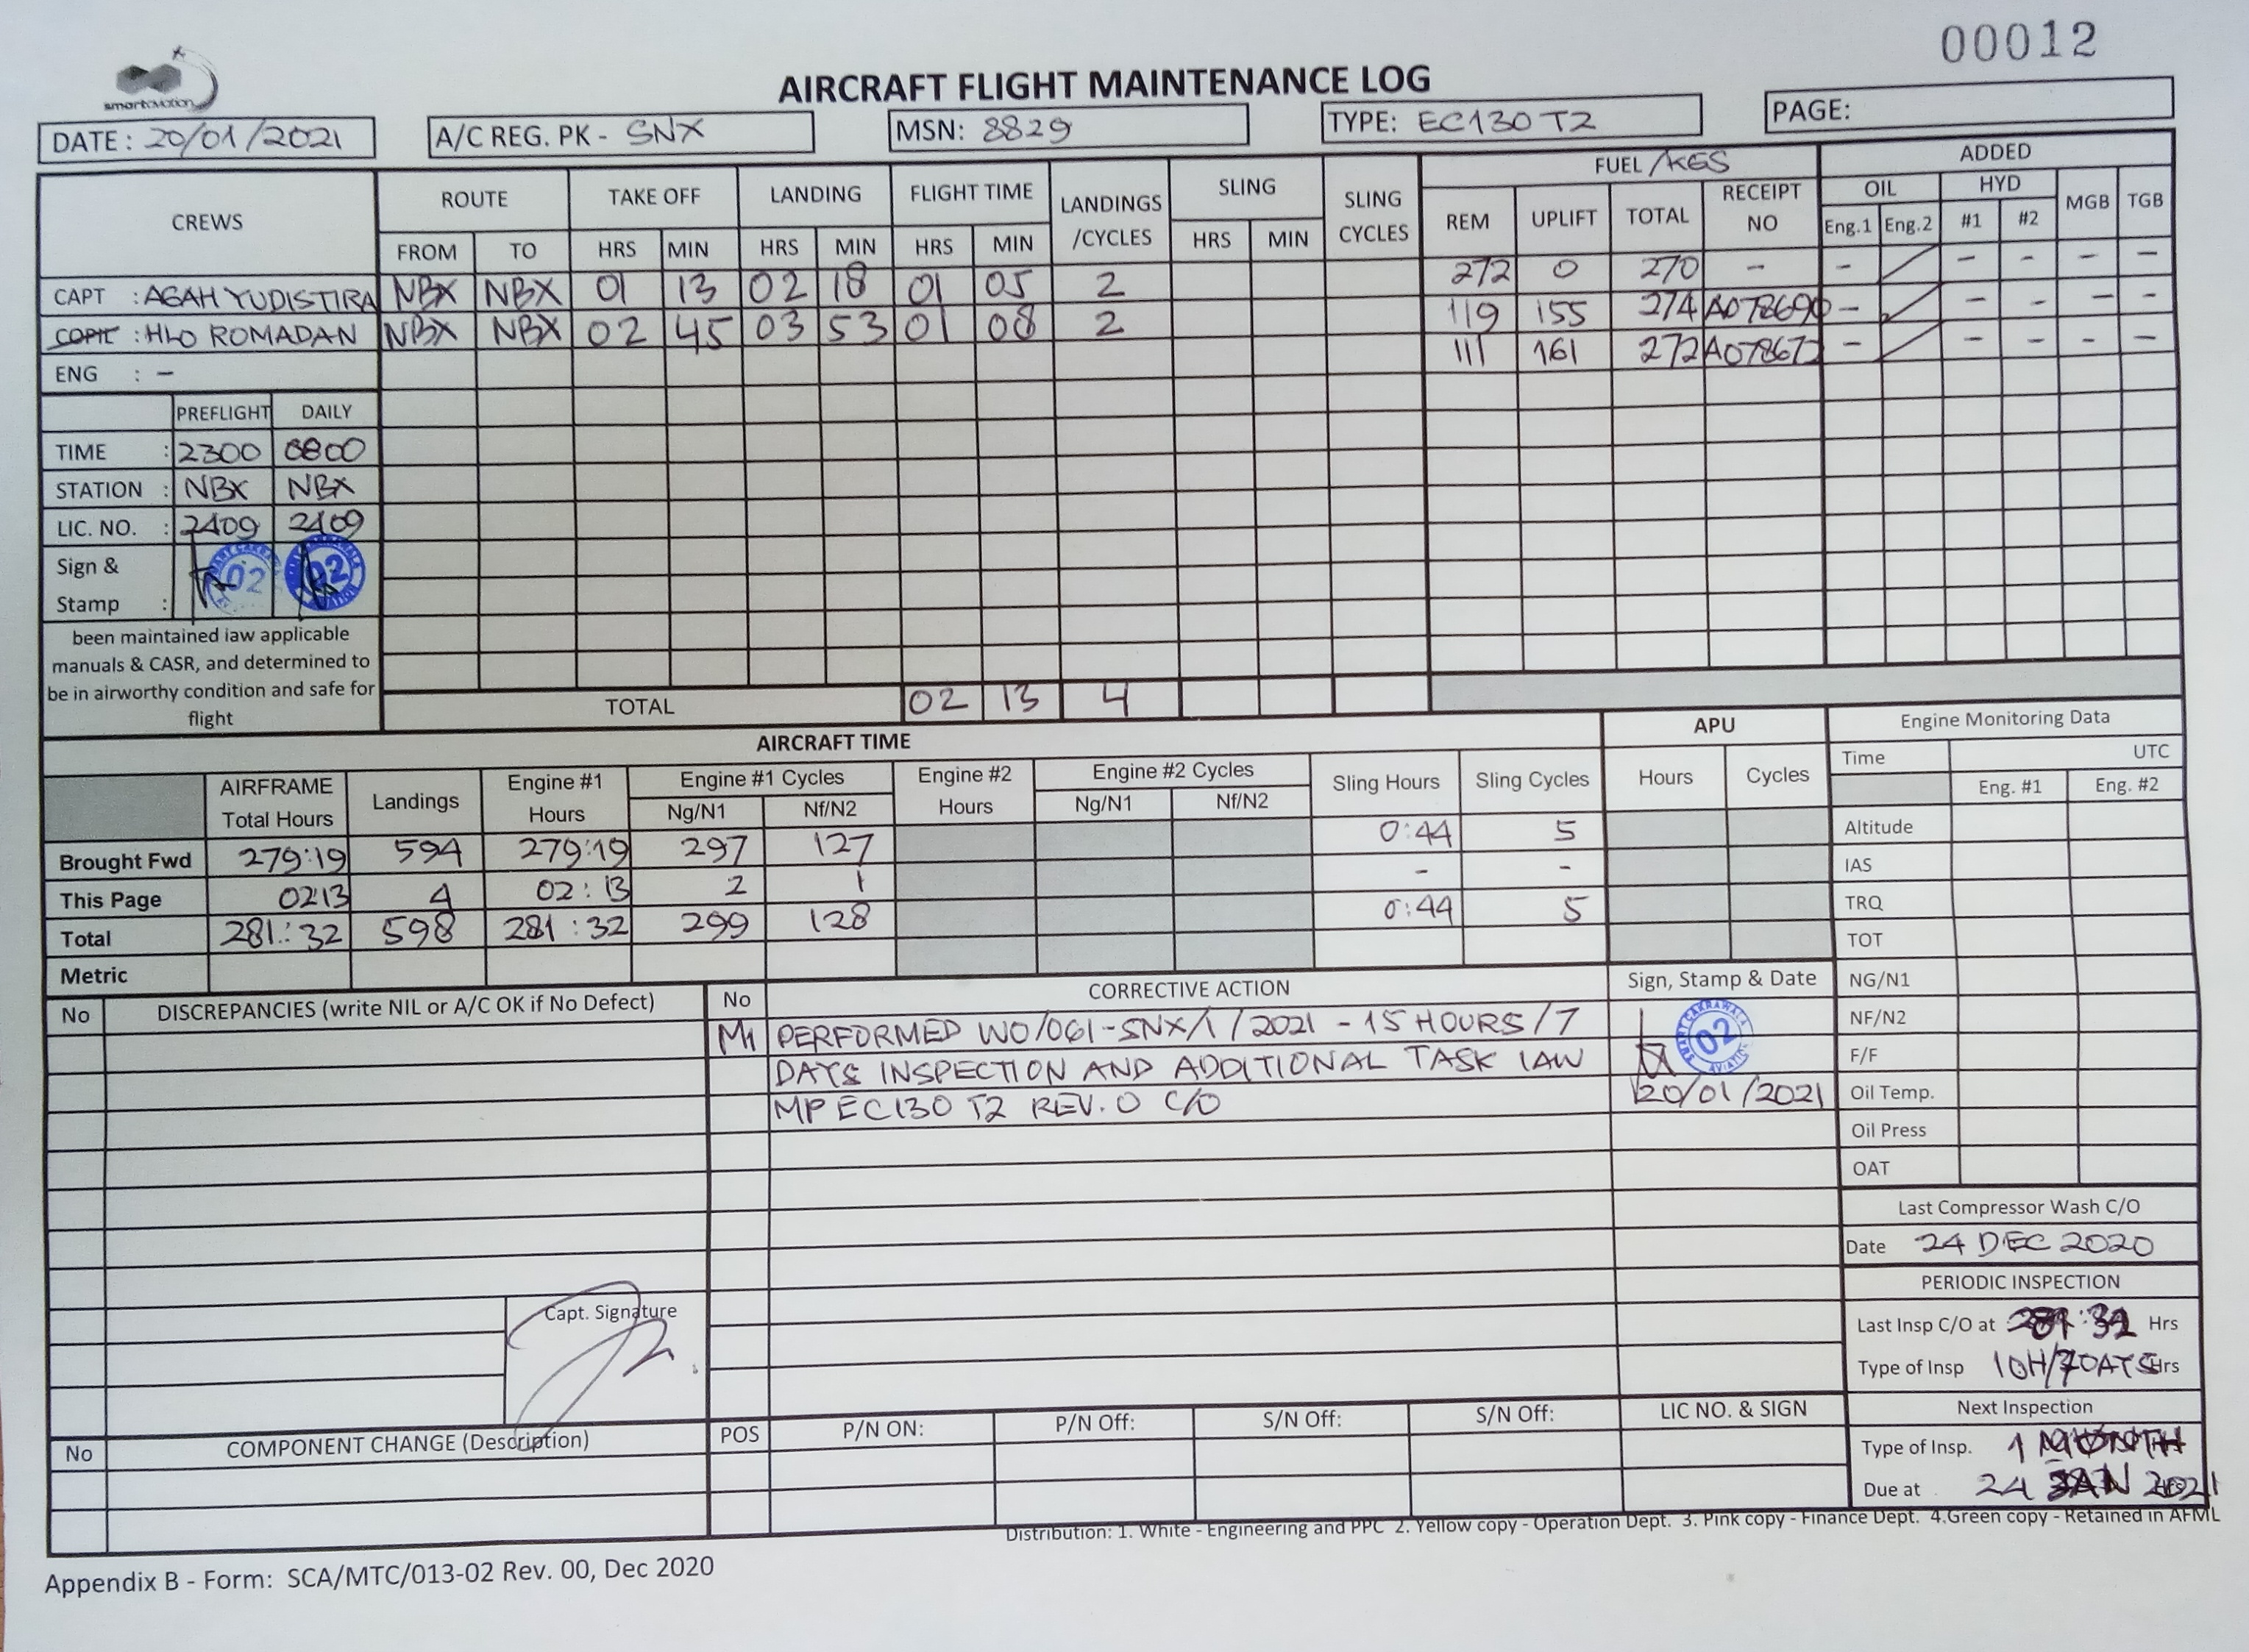 00012
smartaviation
AIRCRAFT FLIGHT MAINTENANCE LOG
DATE : 20/01/2021 A/C REG. PK - SNX MSN: 8829 TYPE: EC130 T2 PAGE:
CREWS ROUTE TAKE OFF LANDING FLIGHT TIME LANDINGS /CYCLES SLING SLING CYCLES FUEL /KGS ADDED
FROM TO HRS MIN HRS MIN HRS MIN HRS MIN REM UPLIFT TOTAL RECEIPT NO OIL HYD MGB TGB
Eng.1 Eng.2 #1 #2
CAPT : AGAH YUDISTIRA NBX NBX 01 13 02 18 01 05 2 272 0 270 - - - - - -
COPIL : HLO ROMADAN NBX NBX 02 45 03 53 01 08 2 119 155 274 A078690 - - - - -
111 161 272 - - - - -
ENG : -
PREFLIGHT DAILY
TIME : 2300 0800
STATION : NBX NBX
LIC. NO. : 2409 2409
Sign & Stamp : 02 02
been maintained iaw applicable
manuals & CASR, and determined to
be in airworthy condition and safe for
flight
TOTAL 02 13 4
AIRCRAFT TIME APU Engine Monitoring Data
AIRFRAME Total Hours Landings Engine #1 Hours Engine #1 Cycles Engine #2 Hours Engine #2 Cycles Sling Hours Sling Cycles Hours Cycles
Ng/N1 Nf/N2 Ng/N1 Nf/N2
Brought Fwd 279:19 594 279:19 297 127 0:44 5
This Page 02:13 4 02:13 2 1 - -
Total 281:32 598 281:32 299 128 0:44 5
Metric
Time UTC
Eng. #1 Eng. #2
Altitude
IAS
TRQ
TOT
NG/N1
NF/N2
F/F
Oil Temp.
Oil Press
OAT
No DISCREPANCIES (write NIL or A/C OK if No Defect) No CORRECTIVE ACTION Sign, Stamp & Date
M1 PERFORMED WO/061-SNX/1/2021 - 15 HOURS/7
DAYS INSPECTION AND ADDITIONAL TASK IAW
MP EC130 T2 REV. 0 C/O
02
20/01/2021
Capt. Signature
Last Compressor Wash C/O
Date 24 DEC 2020
PERIODIC INSPECTION
Last Insp C/O at Hrs
Type of Insp 10H/7DAYS Hrs
Next Inspection
Type of Insp. 1 MONTH
Due at 24 JAN 2021
No COMPONENT CHANGE (Description) POS P/N ON: P/N Off: S/N Off: S/N Off: LIC NO. & SIGN
Distribution: 1. White - Engineering and PPC 2. Yellow copy - Operation Dept. 3. Pink copy - Finance Dept. 4.Green copy - Retained in AFML
Appendix B - Form: SCA/MTC/013-02 Rev. 00, Dec 2020